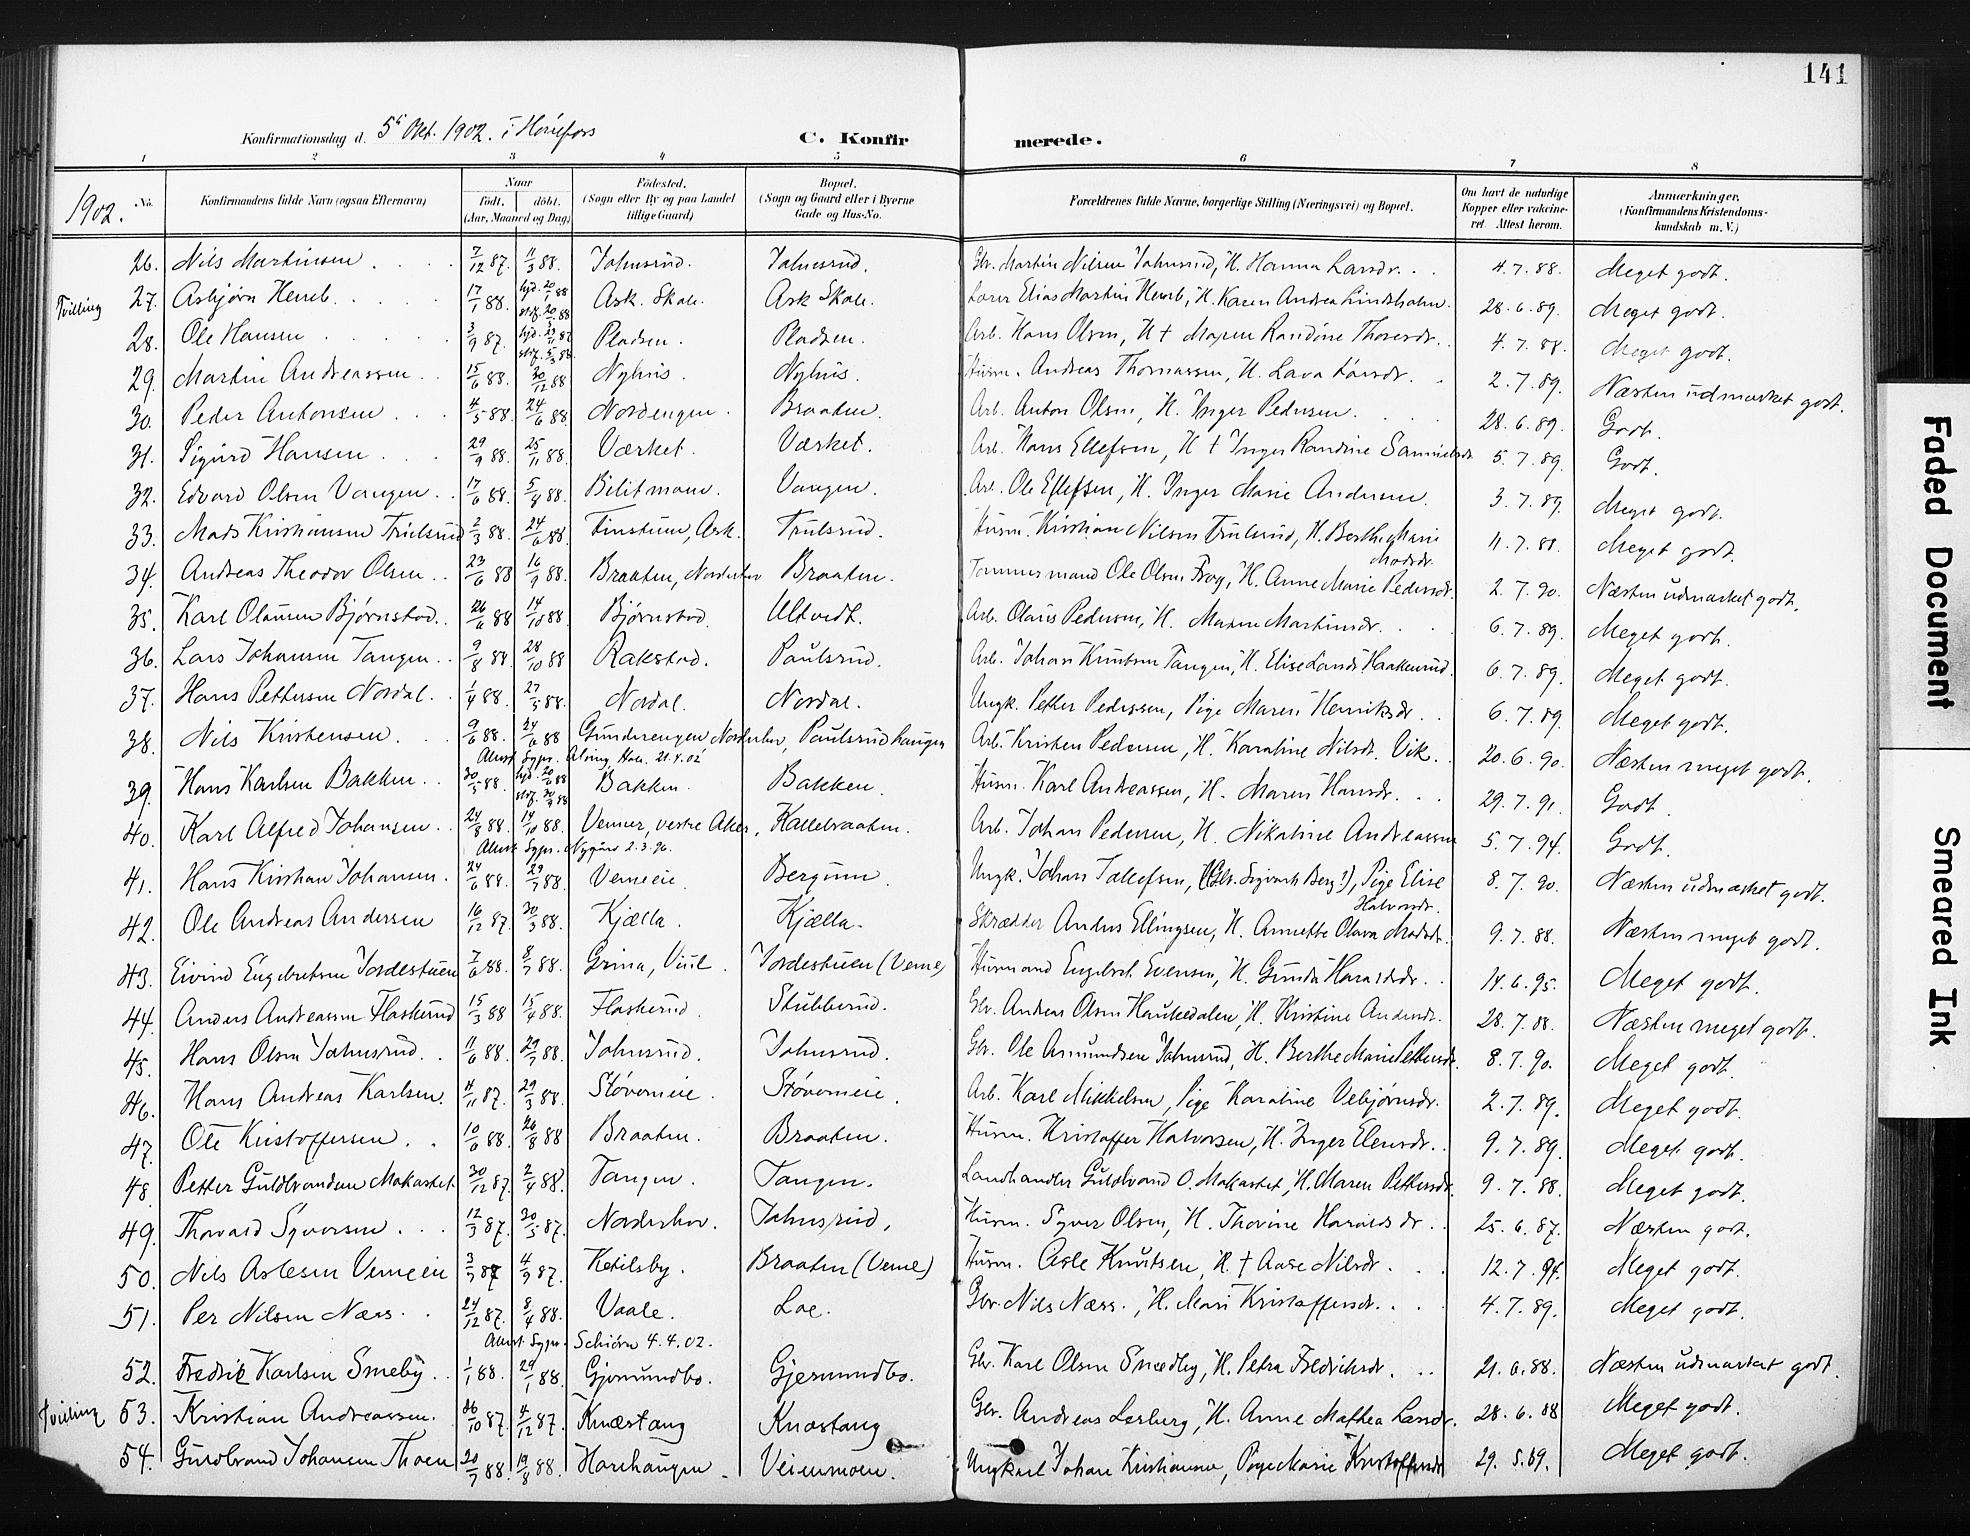 141
Konfirmationsdag d. 5te Okt. 1902. i Hønefos
C. Konfirmerede.
1 2 3 4 5 6 7 8
1902. No. Konfirmandens fulde Navn (ogsaa Efternavn) Naar Födt. döbt. (Aar, Maaned og Dag) Födested. (Sogn eller By og paa Landet tillige Gaard) Bopæl. (Sogn og Gaard eller i Byerne Gade og Hus-No. Forældrenes fulde Navne, borgerlige Stilling (Næringsvei) og Bopæl. Om havt de naturlige Kopper eller vaccineret. Attest herom. Anmærkninger. (Konfirmandens Kristendomskundskab m. V.)
26. Nils Martinsen 7/12 87. 11/3 88. Jahnsrud. Jahnsrud. Gbr. Martin Nilsen Jahnsrud, H. Hanna Larsdr. 4.7.88. Meget godt.
Tvilling 27. Asbjørn 17/1 88. hjd. 20/1 88 Ask Skole. Ask Skole. Lærer Elias Martin, H. Karen Andrea Lindholm. 28.6.89. Meget godt.
28. Ole Hansen 3/9 87. Pladsen. Pladsen. Arb. Hans Olsen, H † Maren Randine Thoresdr. 4.7.88. Meget godt.
29. Martin Andreassen 15/6 88. 30/12 88 Nyhus. Nyhus. Husm. Andreas Thomassen, H. Lava Larsdr. 2.7.89. Næsten udmærket godt.
30. Peder Antonsen 4/5 88. 24/6 88. Nordengen. Braaten. Arb. Anton Olsen, H. Inger Pedersen. 28.6.89. Godt.
31. Sigurd Hansen 29/9 88. 25/11 88. Værket. Værket. Arb. Hans Ellefsen, H † Inger Randine Samuelsdr. 5.7.89. Godt.
32. Edvard Olsen Vangen. 17/6 88. 5/8 88. Bilitmoen. Vangen. Arb. Ole Ellefsen, H. Inger Marie Andersen. 3.7.89. Meget godt.
33. Mads Kristiansen Trulsrud 2/3 88. 24/6 88. Finstuen, Ask. Trulsrud. Husm. Kristian Nilsen Trulsrud, H. Berthe Marie Madsdr. 11.7.88. Meget godt.
34. Andreas Theodor Olsen 23/6 88 16/9 88. Braaten, Norderhov Braaten. Tømmermand Ole Olsen Frog, H. Anne Marie Pedersdr. 2.7.90. Næsten udmærket godt.
35. Karl Olausen Bjørnstad. 26/6 88 14/10 88. Bjørnstad. Ultvedt. Arb. Olaus Pedersen, H. Maren Martinsdr. 6.7.89. Meget godt.
36. Lars Johansen Tangen 9/8 88. 28/10 88 Rakstad. Paulsrud. Arb. Johan Knutsen Tangen, H. Elise Larsdr Haakenrud. 6.7.89. Meget godt.
37. Hans Pettersen Nordal. 1/4 88. 27/5 88. Nordal. Nordal. Ungk. Petter Pedersen, Pige Maren Henriksdr. 6.7.89. Meget godt.
38. Nils Kristensen 9/6 88. 24/6 88 Gunderengen, Norderhov, Paulsrudhaugen Arb. Kristen Pedersen, H. Karoline Nilsdr. Vik. 20.6.90. Næsten meget godt.
39. Hans Karlsen Bakken 30/5 88. Bakken. Bakken. Husm. Karl Andreassen, H. Maren Hansdr. 29.7.91. Godt.
40. Karl Alfred Johansen 24/8 88. 14/10 88. vestre Aker, Kallebraaten. Arb. Johan Pedersen, H. Nikoline Andreassen 5.7.94. Godt.
Attest Sypr. Nygård 2.3.96.
41. Hans Kristian Johansen. 24/6 88. 29/7 88. Vemeeie. Bergum. Ungk. Johan Tollefsen, Pige Elise Halvorsdr. 8.7.90. Næsten udmærket godt.
42. Ole Andreas Andersen 16/12 87. 30/3 88. Kjælla. Kjælla. Skrædder Anders Ellingsen, H. Annette Olava Madsdr. 9.7.88. Næsten meget godt.
43. Eivind Engebretsen Jordestuen 7/6 88. 8/7 88. Grina, Viul. Jordestuen (Veme) Husmand Engebret Evensen, H. Gunda Haraldsdr. 14.6.95. Meget godt.
44. Anders Andreassen Flaskerud 15/3 88 15/4 88. Flaskerud. Stubberud. Gbr. Andreas Olsen Haukedalen, H. Kristine Andersdr. 28.7.88. Næsten meget godt.
45. Hans Olsen Jahnsrud. 11/6 88. 29/7 88. Jahnsrud. Jahnsrud. Gbr. Ole Amundsen Jahnsrud, H. Berthe Marie Pettersdr. 8.7.90. Meget godt.
46. Hans Andreas Karlsen. 4/11 87. 29/3 88. Støverneie. Støverneie. Arb. Karl Mikkelsen, Pige Karoline Vebjørnsdr. 2.7.89. Meget godt.
47. Ole Kristoffersen. 10/6 88. 26/8 88 Braaten. Braaten. Husm. Kristoffer Halvorsen, H. Inger Elensdr. 9.7.89. Meget godt.
48. Petter Guldbrandsen Mokastet. 30/12 87. 2/4 88. Tangen. Tangen. Landhandler Guldbrand O. Mokastet, H. Maren Pettersdr. 9.7.88. Meget godt.
49. Thorvald Syversen 12/3 87. 20/5 87. Norderhov. Jahnsrud, Husm. Syver Olsen, H. Thorine Haraldsdr. 25.6.87. Næsten godt.
50. Nils Aslesen Vemeeie 3/7 87 4/9 87. Ketilsby. Braaten (Veme) Husm. Asle Knutsen, H. † Aase Nilsdr. 12.7.94. Meget godt.
51. Per Nilsen Næss. 24/12 87. 8/4 88. Vaale. Loe. Gbr. Nils Næss., H. Mari Kristoffersdr. 4.7.89. Meget godt.
Attest Sypr. Schiörn 4.4.02.
52. Fredrik Karlsen Smeby. 1/1 88. 29/1 88. Gjermundbo. Gjermundbo. Gbr. Karl Olsen Smedby, H. Petra Fredriksdr. 21.6.88. Næsten udmærket godt.
Tvilling 53. Kristian Andreassen. 26/10 87. 4/12 87. Knæstang Knæstang Gbr. Andreas Lesberg, H. Anne Mathea Larsdr. 28.6.88 Meget godt.
54. Guldbrand Johansen Moen 20/7 88. 19/8 88. Honehaugen. Veienmoen. Ungkarl Johan Kristiansen, Pige Marie Kristoffersdr 29.5.89. Meget godt.
Faded Document
Smeared Ink